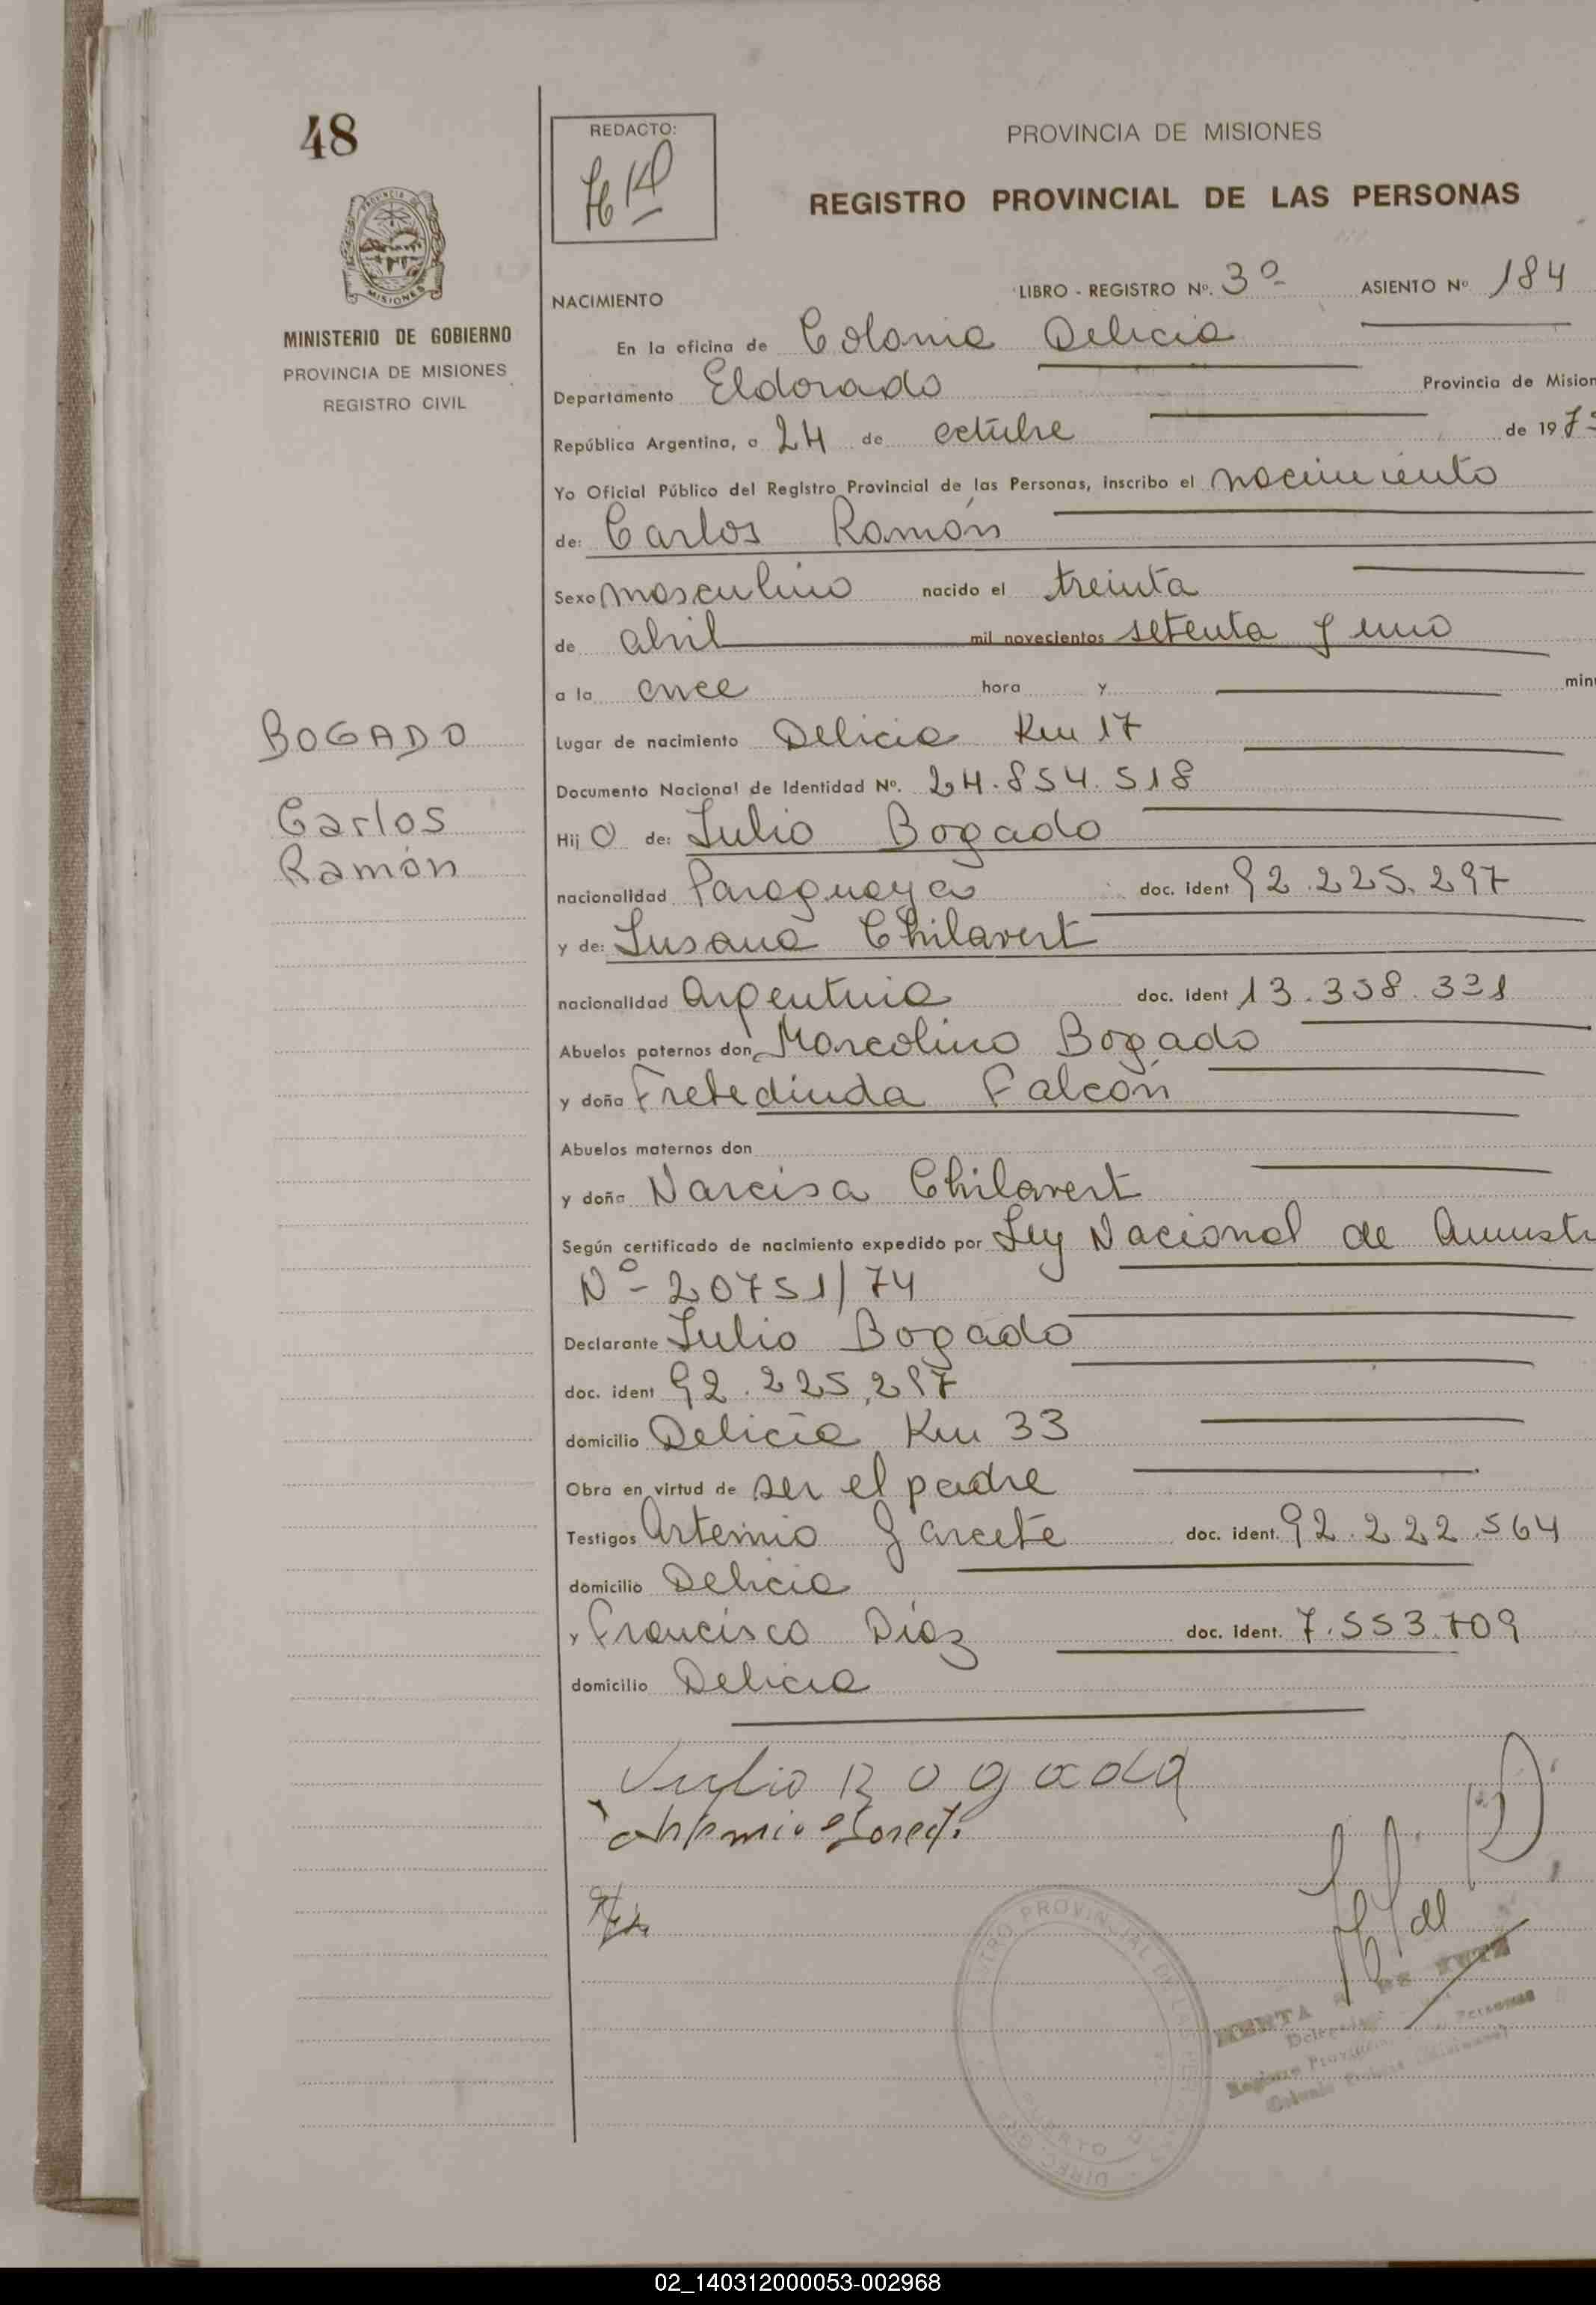 48
REDACTO:
PROVINCIA DE MISIONES
REGISTRO PROVINCIAL DE LAS PERSONAS
PROVINCIA DE
MISIONES
MINISTERIO DE GOBIERNO
PROVINCIA DE MISIONES
REGISTRO CIVIL
NACIMIENTO
LIBRO - REGISTRO Nº. 3º ASIENTO Nº 184
En la oficina de Colonia Delicia
Departamento Eldorado Provincia de Mision
República Argentina, a 24 de octubre de 197
Yo Oficial Público del Registro Provincial de las Personas, inscribo el nacimiento
de: Carlos Ramón
Sexo masculino nacido el treinta
de abril mil novecientos setenta y uno
a la once hora y min
BOGADO
Carlos
Ramón
Lugar de nacimiento Delicia Km 17
Documento Nacional de Identidad Nº. 24.854.518
Hijo de: Julio Bogado
nacionalidad Paraguaya doc. ident 92.225.297
y de: Susana Chilavert
nacionalidad Argentina doc. ident 13.358.331
Abuelos paternos don Marcolino Bogado
y doña Fretedinda Falcón
Abuelos maternos don
y doña Narcisa Chilavert
Según certificado de nacimiento expedido por Ley Nacional de Amnisti
Nº- 20751/74
Declarante Julio Bogado
doc. ident 92.225.297
domicilio Delicia Km 33
Obra en virtud de ser el padre
Testigos Artemio Garcete doc. ident. 92.222.564
domicilio Delicia
y Francisco Díaz doc. ident. 7.553.709
domicilio Delicia
Julio Bogado
REGISTRO PROVINCIAL DE LAS
PUERTO
02_140312000053-002968